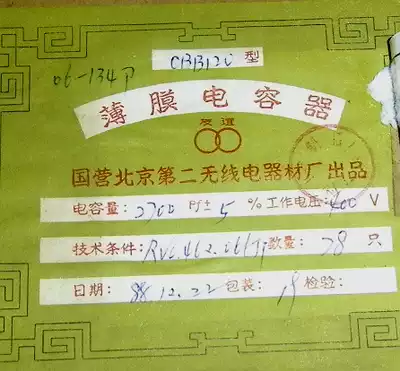 CBB120 型
06-134P
薄膜电容器
友谊
国营北京第二无线电器材厂出品
电容量: 2700 Pf± 5 % 工作电压: 400 V
技术条件: 数量: 78 只
日期: 88.12.22 包装: 19 检验: